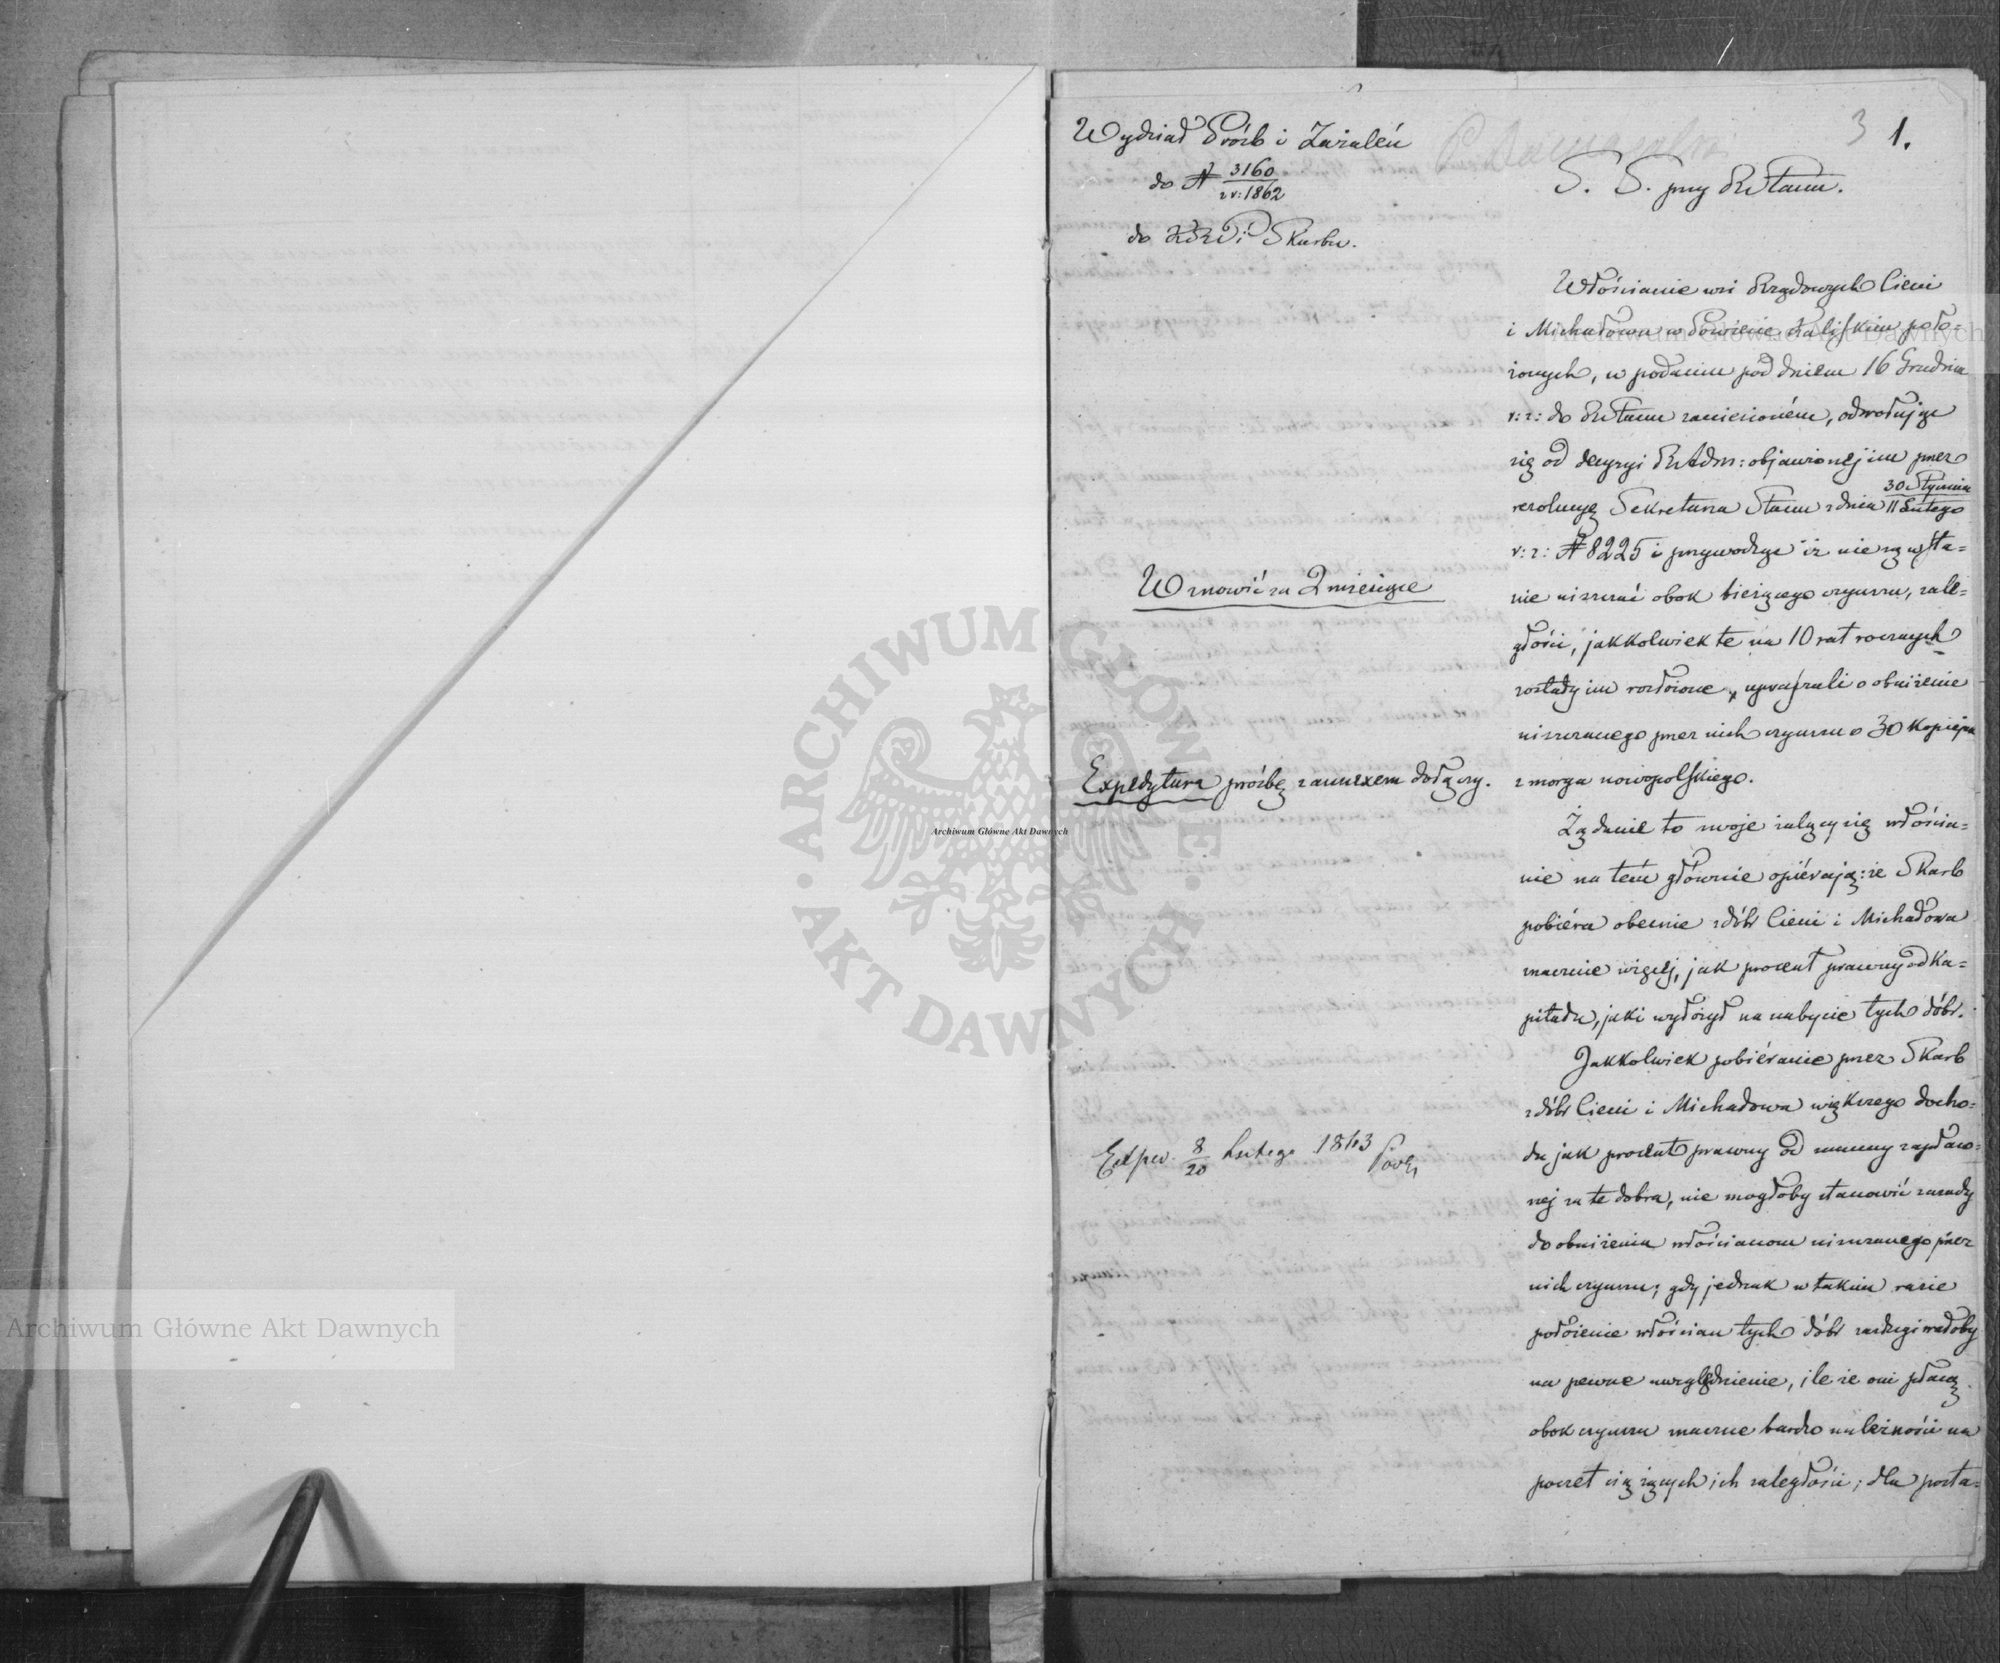 3 1.
Wydział Próśb i Zażaleń
do № 3160
z r: 1862
do KRP i Skarbu.
Wznowić za 2 miesiące
Expedytura prośbę z annexem dołączy.
Exped. 8/20 Lutego 1863
S. S. przy RStanu.
Włościanie wsi Rządowych Cieni
i Michałowa w Powiecie Kaliskim poło-
żonych, w podaniu pod dniem 16 Grudnia
r: z: do RStanu zaniesioném, odwołując
się od decyzyi RAdm: objawionej im przez
rezolucyę Sekretarza Stanu z dnia 30 Stycznia
11 Lutego
r: z: № 8225 i przywodząc iż nie są w sta-
nie uiszczać obok bieżącego czynszu, zale-
głości, jakkolwiek te na 10 rat rocznych
zostały im rozłożone, upraszali o obniżenie
uiszczanego przez nich czynszu o 30 kopiejek
z morga nowopolskiego.
Żądanie to swoje żalący się włościa-
nie na tém głównie opiérają: że Skarb
pobiéra obecnie z dóbr Cieni i Michałowa
znacznie więcej, jak procent prawny od ka-
pitału, jaki wyłożył na nabycie tych dóbr.
Jakkolwiek pobiéranie przez Skarb
z dóbr Cieni i Michałowa większego docho-
du jak procent prawny od summy zapłaco-
nej za te dobra, nie mogłoby stanowić zasady
do obniżenia włościanom uiszczanego przez
nich czynszu; gdy jednak w takim razie
położenie włościan tych dóbr zasługiwałoby
na pewne uwzględnienie, ile że oni płacą
obok czynszu znaczne bardzo należności na
poczet ciążących ich zaległości; dla posta-
Archiwum Główne Akt Dawnych
Archiwum Główne Akt Dawnych
Archiwum Główne Akt Dawnych
ARCHIWUM GŁÓWNE · AKT DAWNYCH ·